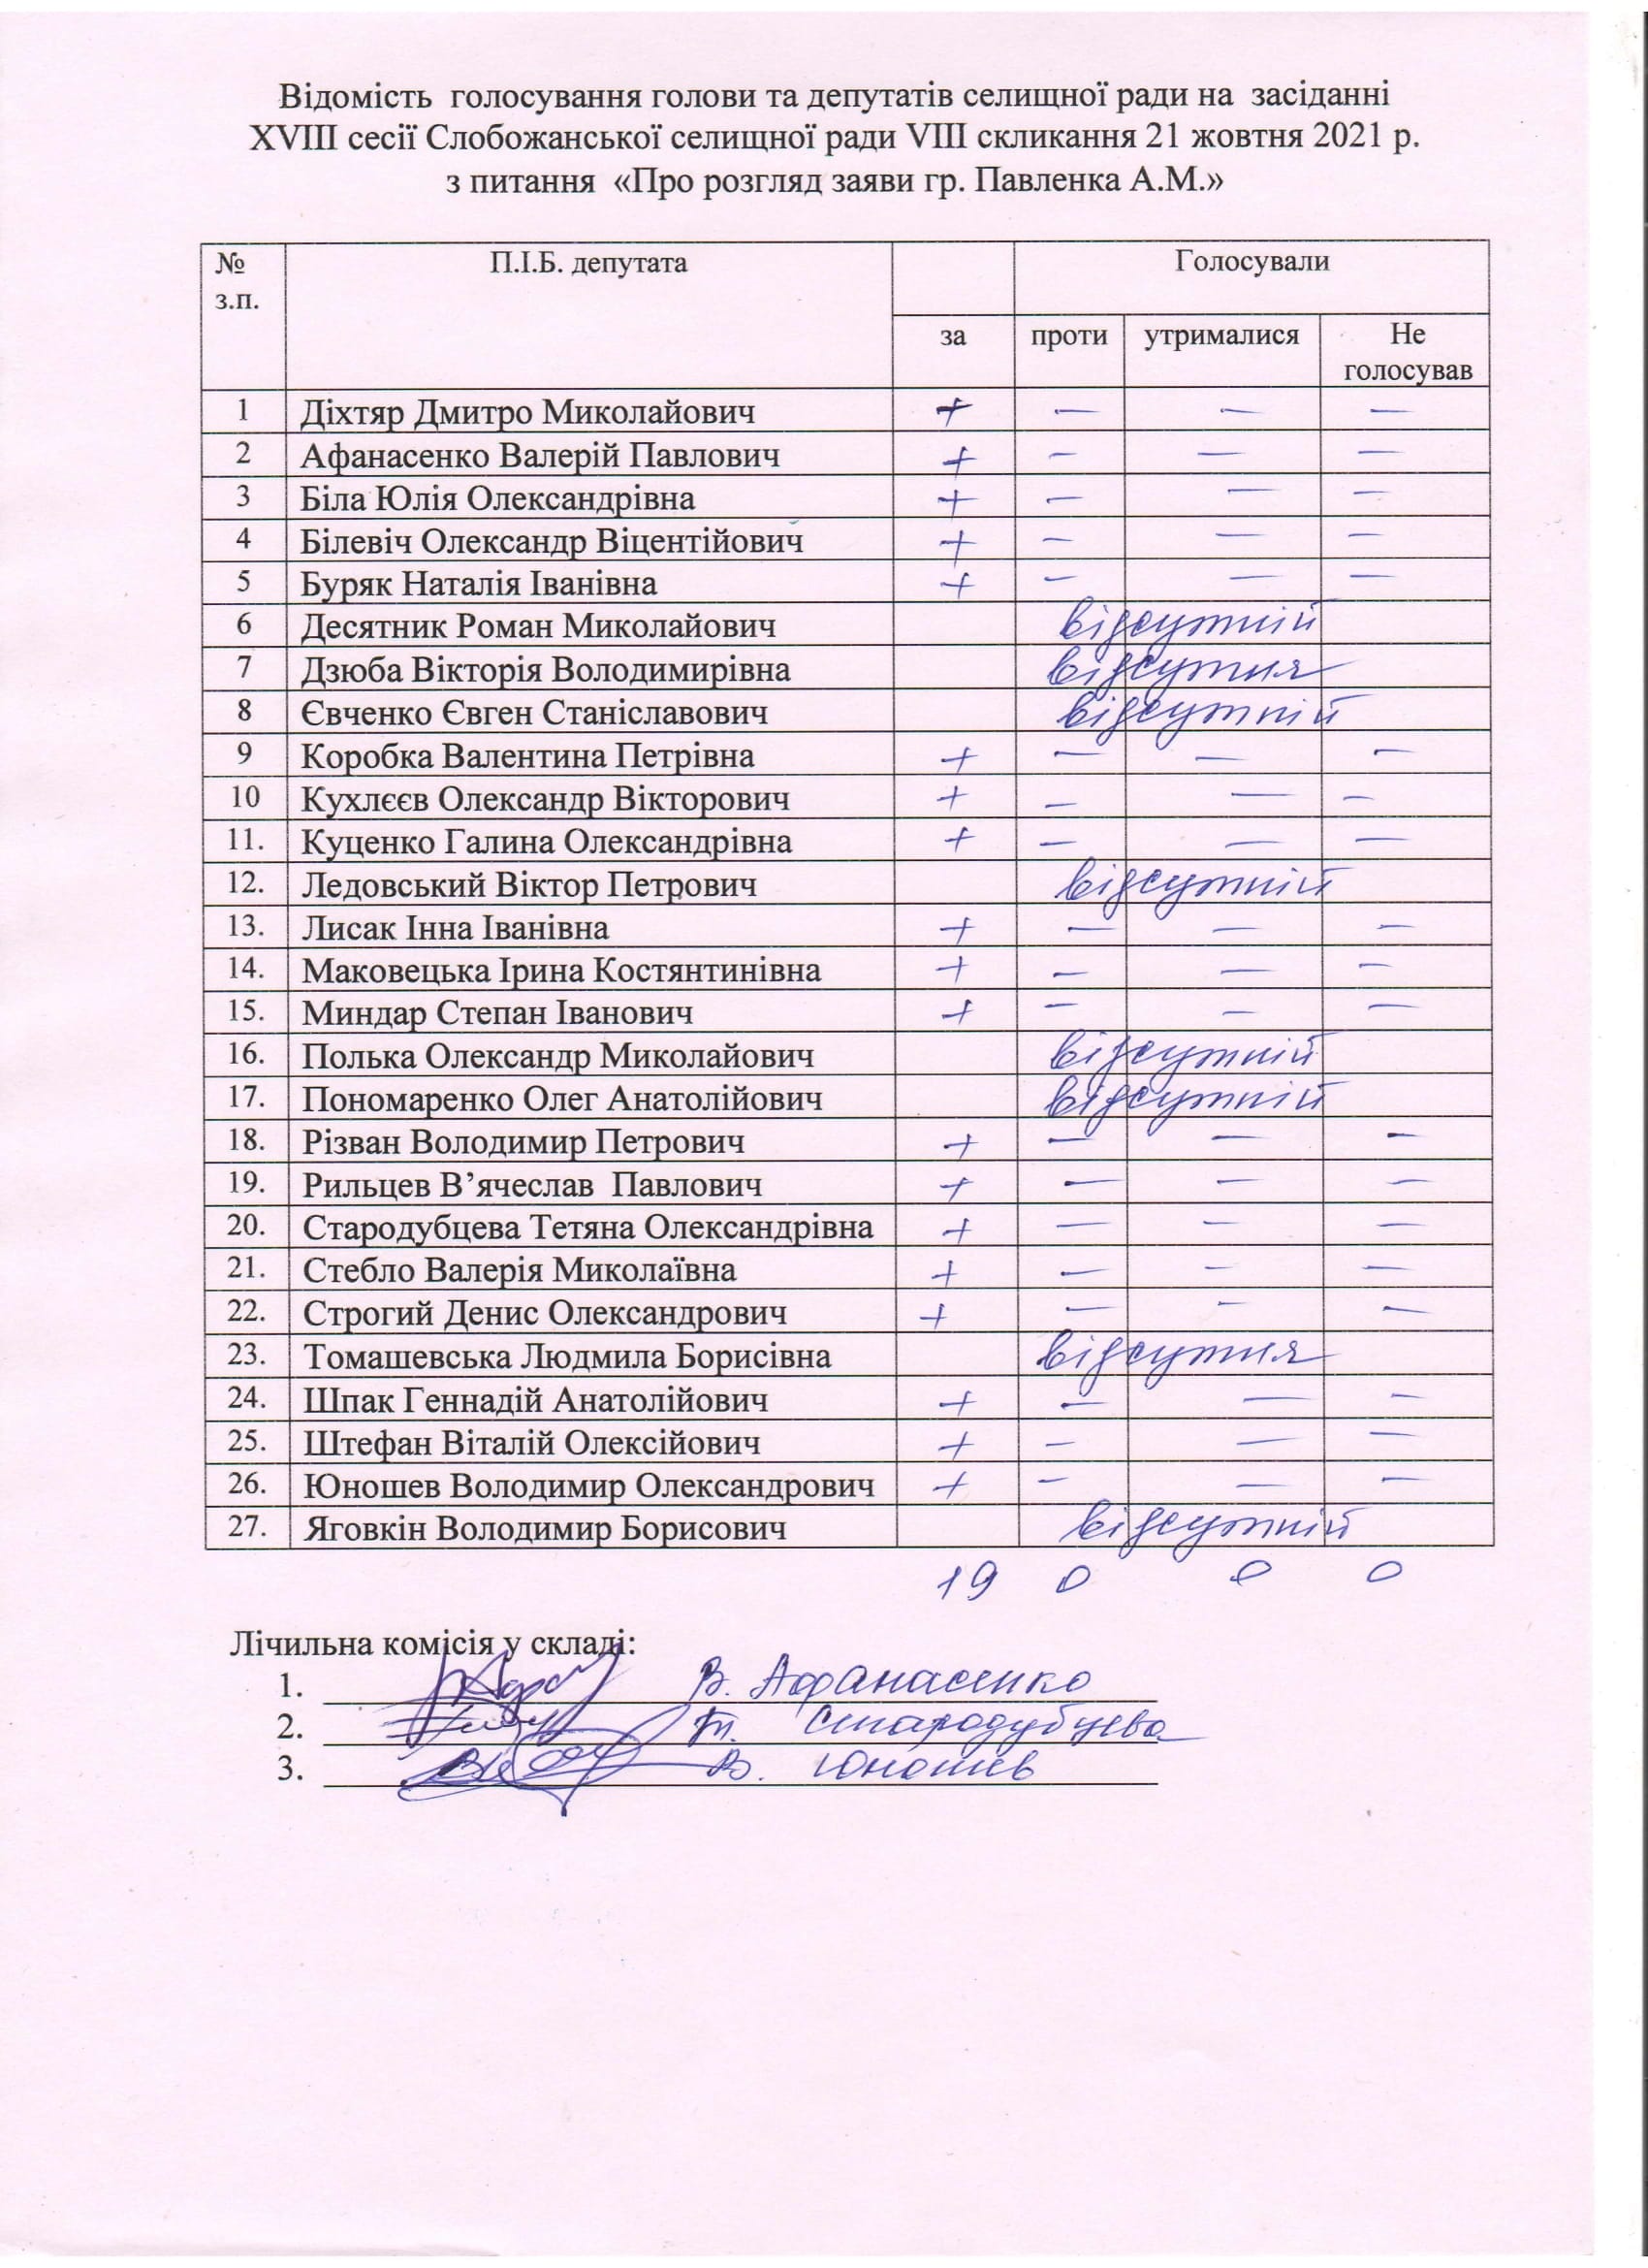 Відомість голосування голови та депутатів селищної ради на засіданні
XVIII сесії Слобожанської селищної ради VIII скликання 21 жовтня 2021 р.
з питання «Про розгляд заяви гр. Павленка А.М.»
№ П.І.Б. депутата Голосували
з.п.
за проти утрималися Не
голосував
1 Діхтяр Дмитро Миколайович + — — —
2 Афанасенко Валерій Павлович + — — —
3 Біла Юлія Олександрівна + — — —
4 Білевіч Олександр Віцентійович + — — —
5 Буряк Наталія Іванівна + — — —
6 Десятник Роман Миколайович відсутній
7 Дзюба Вікторія Володимирівна відсутня
8 Євченко Євген Станіславович відсутній
9 Коробка Валентина Петрівна + — — —
10 Кухлєєв Олександр Вікторович + — — —
11. Куценко Галина Олександрівна + — — —
12. Ледовський Віктор Петрович відсутній
13. Лисак Інна Іванівна + — — —
14. Маковецька Ірина Костянтинівна + — — —
15. Миндар Степан Іванович + — — —
16. Полька Олександр Миколайович відсутній
17. Пономаренко Олег Анатолійович відсутній
18. Різван Володимир Петрович + — — —
19. Рильцев В’ячеслав Павлович + — — —
20. Стародубцева Тетяна Олександрівна + — — —
21. Стебло Валерія Миколаївна + — — —
22. Строгий Денис Олександрович + — — —
23. Томашевська Людмила Борисівна відсутня
24. Шпак Геннадій Анатолійович + — — —
25. Штефан Віталій Олексійович + — — —
26. Юношев Володимир Олександрович + — — —
27. Яговкін Володимир Борисович відсутній
19 0 0 0
Лічильна комісія у складі:
1. В. Афанасенко
2. Т. Стародубцева
3. В. Юношев